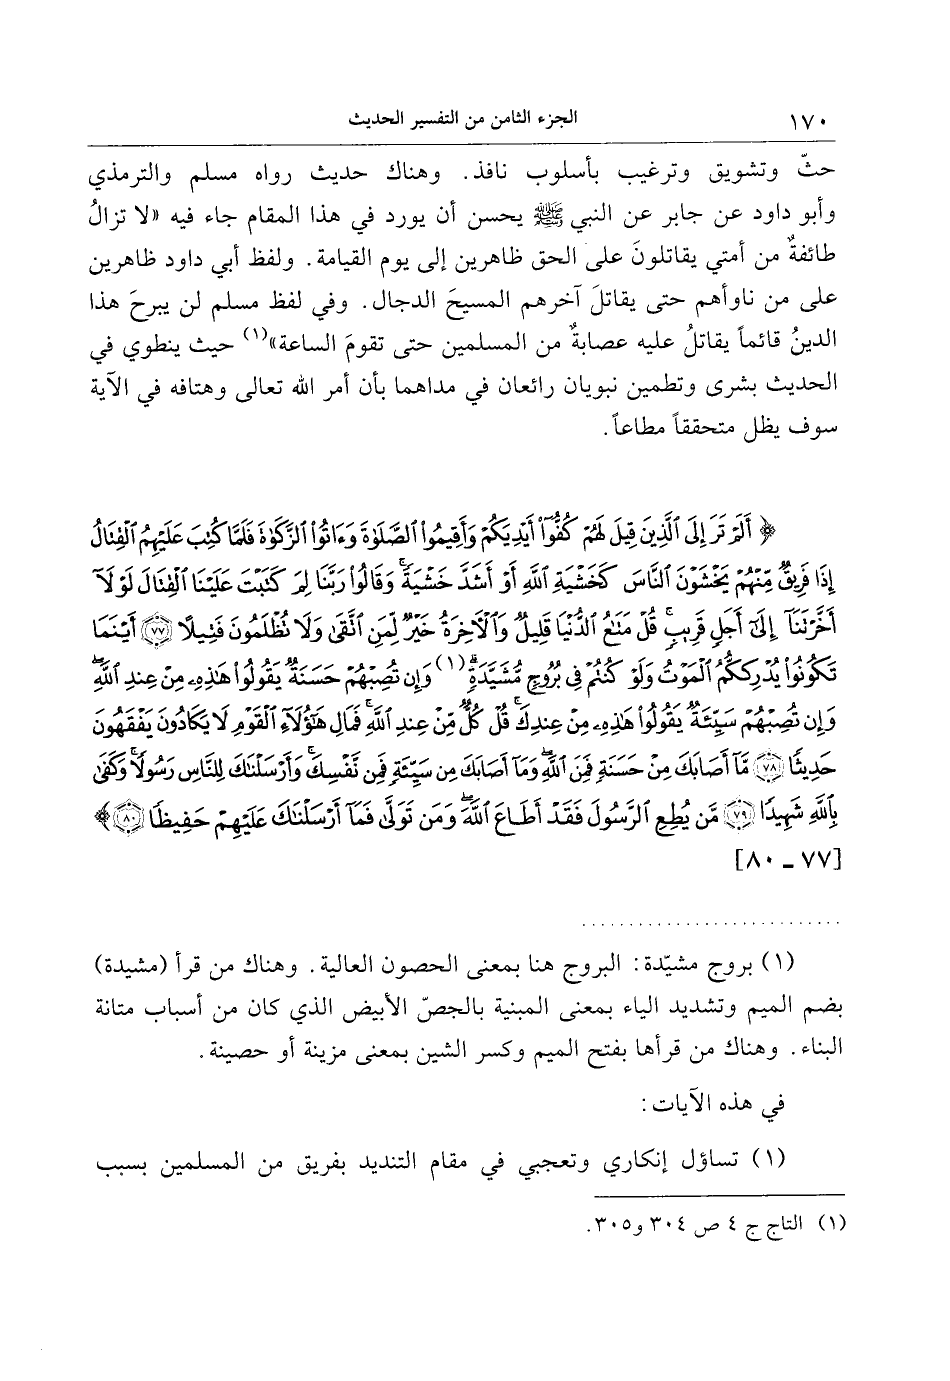 ١٧٠ الجزء الثامن من التفسير الحديث
حثّ وتشويق وترغيب بأسلوب نافذ. وهناك حديث رواه مسلم والترمذي
وأبو داود عن جابر عن النبي ﷺ يحسن أن يورد في هذا المقام جاء فيه «لا تزالُ
طائفةٌ من أمتي يقاتلونَ على الحق ظاهرين إلى يوم القيامة. ولفظ أبي داود ظاهرين
على من ناوأهم حتى يقاتلَ آخرهم المسيحَ الدجال. وفي لفظ مسلم لن يبرحَ هذا
الدينُ قائماً يقاتلُ عليه عصابةٌ من المسلمين حتى تقومَ الساعة»(١) حيث ينطوي في
الحديث بشرى وتطمين نبويان رائعان في مداهما بأن أمر الله تعالى وهتافه في الآية
سوف يظل متحققاً مطاعاً.
﴿ أَلَمْ تَرَ إِلَى ٱلَّذِينَ قِيلَ لَهُمْ كُفُّوٓا۟ أَيْدِيَكُمْ وَأَقِيمُوا۟ ٱلصَّلَوٰةَ وَءَاتُوا۟ ٱلزَّكَوٰةَ فَلَمَّا كُتِبَ عَلَيْهِمُ ٱلْقِتَالُ
إِذَا فَرِيقٌ مِّنْهُمْ يَخْشَوْنَ ٱلنَّاسَ كَخَشْيَةِ ٱللَّهِ أَوْ أَشَدَّ خَشْيَةً ۚ وَقَالُوا۟ رَبَّنَا لِمَ كَتَبْتَ عَلَيْنَا ٱلْقِتَالَ لَوْلَآ
أَخَّرْتَنَآ إِلَىٰٓ أَجَلٍ قَرِيبٍ ۗ قُلْ مَتَٰعُ ٱلدُّنْيَا قَلِيلٌ وَٱلْءَاخِرَةُ خَيْرٌ لِّمَنِ ٱتَّقَىٰ وَلَا تُظْلَمُونَ فَتِيلًا ٧٧ أَيْنَمَا
تَكُونُوا۟ يُدْرِككُّمُ ٱلْمَوْتُ وَلَوْ كُنتُمْ فِى بُرُوجٍ مُّشَيَّدَةٍ ۗ (١) وَإِن تُصِبْهُمْ حَسَنَةٌ يَقُولُوا۟ هَٰذِهِۦ مِنْ عِندِ ٱللَّهِ ۖ
وَإِن تُصِبْهُمْ سَيِّئَةٌ يَقُولُوا۟ هَٰذِهِۦ مِنْ عِندِكَ ۚ قُلْ كُلٌّ مِّنْ عِندِ ٱللَّهِ ۖ فَمَالِ هَٰٓؤُلَآءِ ٱلْقَوْمِ لَا يَكَادُونَ يَفْقَهُونَ
حَدِيثًا ٧٨ مَّآ أَصَابَكَ مِنْ حَسَنَةٍ فَمِنَ ٱللَّهِ ۖ وَمَآ أَصَابَكَ مِن سَيِّئَةٍ فَمِن نَّفْسِكَ ۚ وَأَرْسَلْنَٰكَ لِلنَّاسِ رَسُولًا ۚ وَكَفَىٰ
بِٱللَّهِ شَهِيدًا ٧٩ مَّن يُطِعِ ٱلرَّسُولَ فَقَدْ أَطَاعَ ٱللَّهَ ۖ وَمَن تَوَلَّىٰ فَمَآ أَرْسَلْنَٰكَ عَلَيْهِمْ حَفِيظًا ٨٠ ﴾
[٧٧ ـ ٨٠]
(١) بروج مشيّدة: البروج هنا بمعنى الحصون العالية. وهناك من قرأ (مشيدة)
بضم الميم وتشديد الياء بمعنى المبنية بالجصّ الأبيض الذي كان من أسباب متانة
البناء. وهناك من قرأها بفتح الميم وكسر الشين بمعنى مزينة أو حصينة.
في هذه الآيات:
(١) تساؤل إنكاري وتعجبي في مقام التنديد بفريق من المسلمين بسبب
(١) التاج ج ٤ ص ٣٠٤ و٣٠٥.